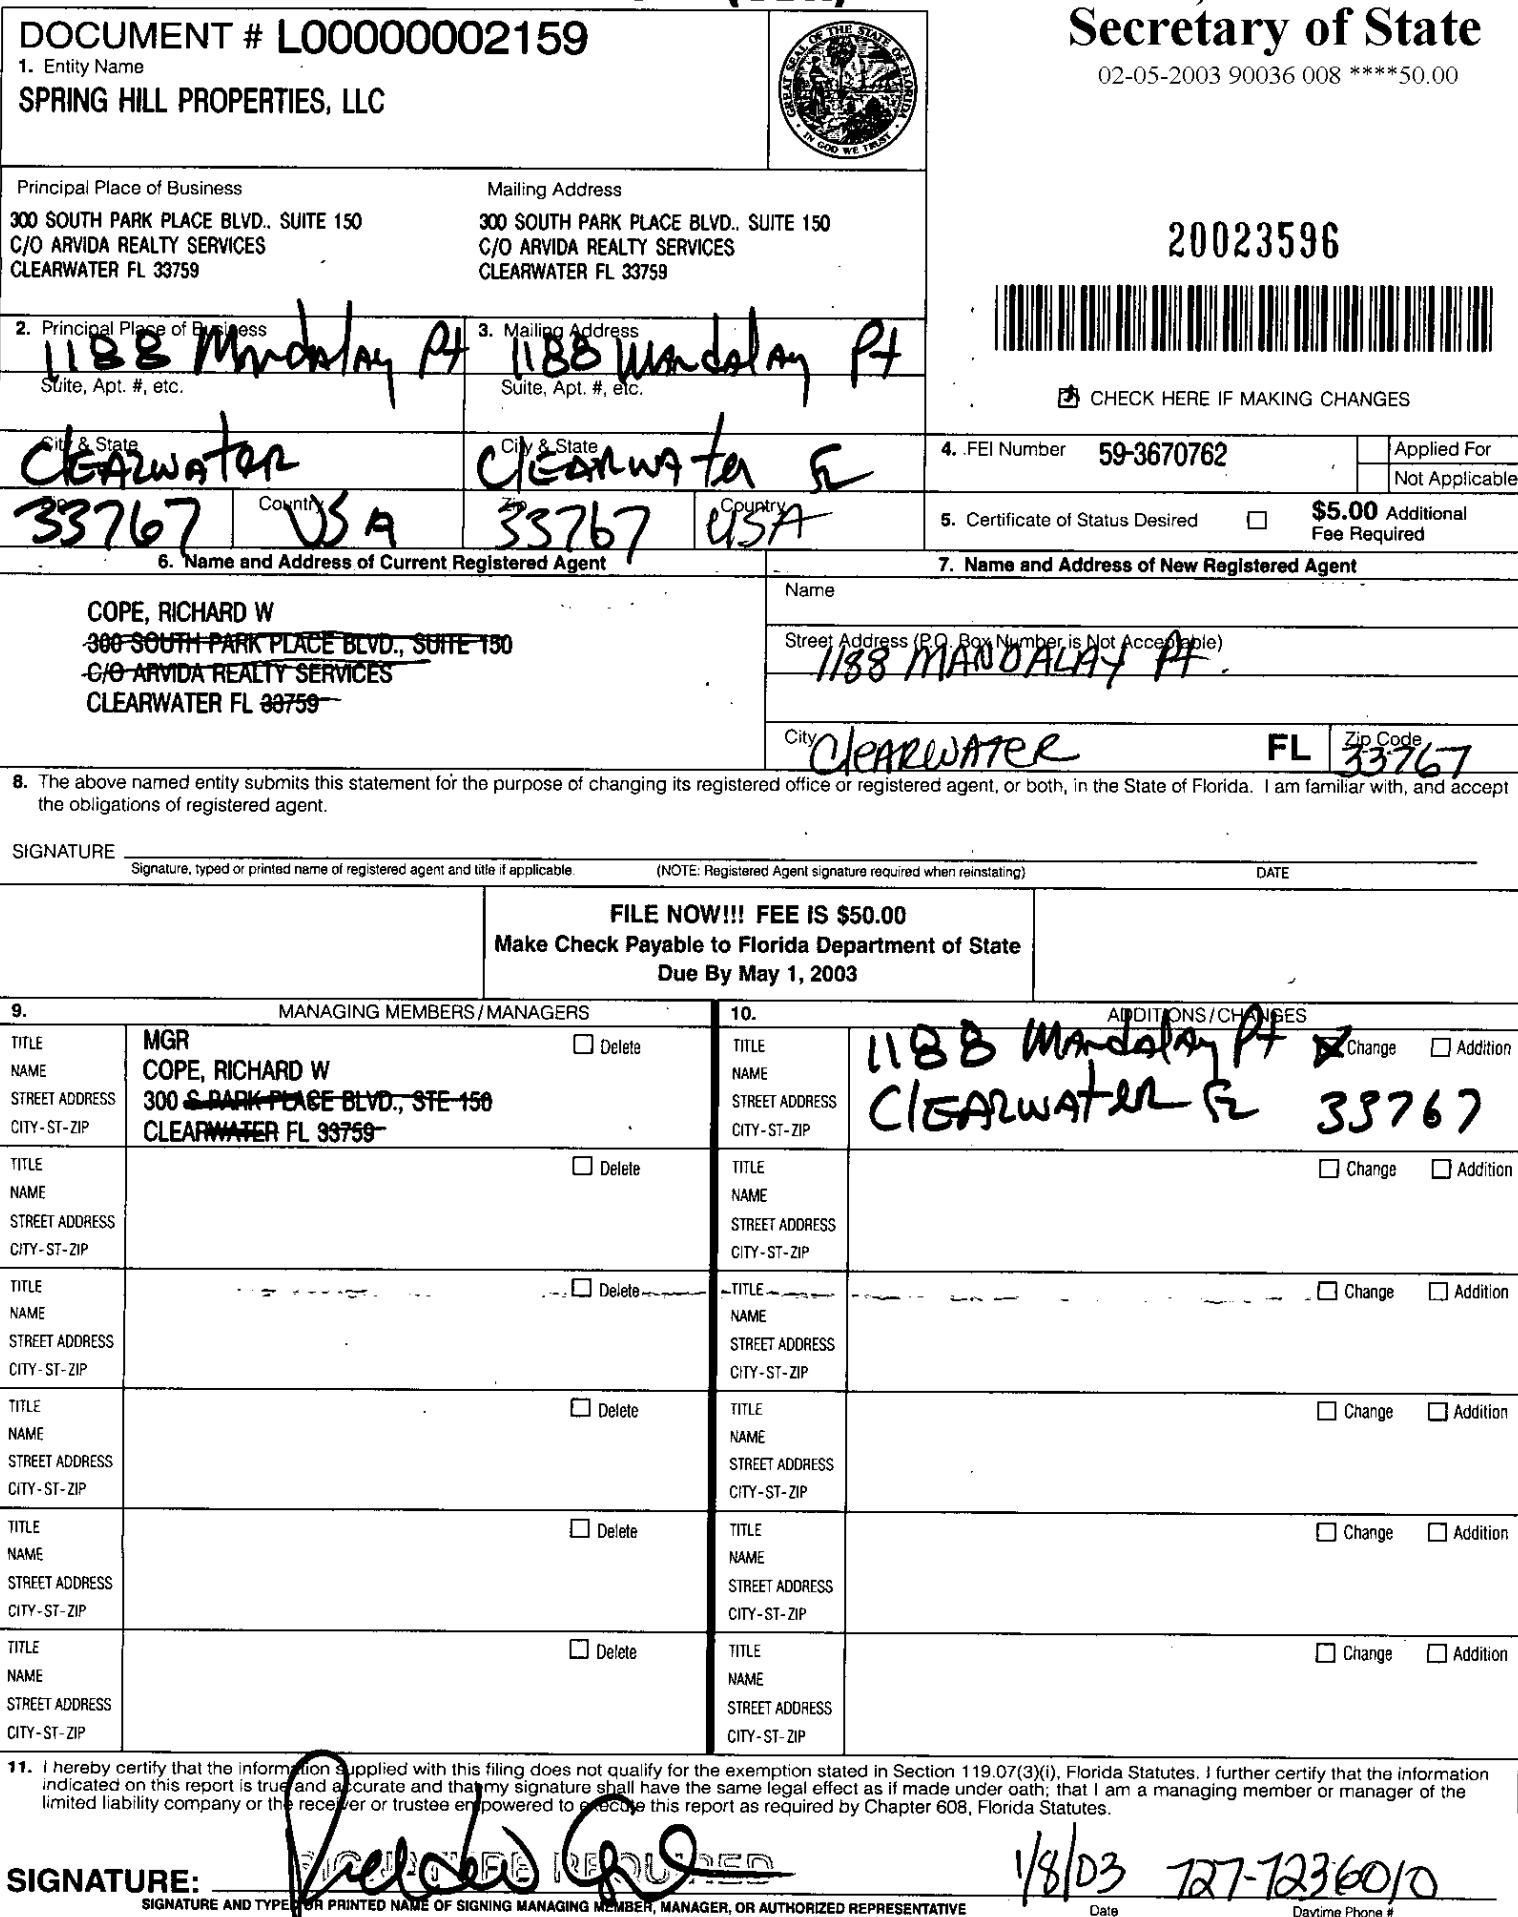 DOCUMENT # L00000002159
1. Entity Name
SPRING HILL PROPERTIES, LLC
GREAT SEAL OF THE STATE OF FLORIDA
IN GOD WE TRUST
Secretary of State
02-05-2003 90036 008 ****50.00
Principal Place of Business
300 SOUTH PARK PLACE BLVD., SUITE 150
C/O ARVIDA REALTY SERVICES
CLEARWATER FL 33759
Mailing Address
300 SOUTH PARK PLACE BLVD., SUITE 150
C/O ARVIDA REALTY SERVICES
CLEARWATER FL 33759
20023596
CHECK HERE IF MAKING CHANGES
2. Principal Place of Business
1188 Mandalay Pt
Suite, Apt. #, etc.
City & State
Clearwater
Zip
33767
Country
USA
3. Mailing Address
1188 Mandalay Pt
Suite, Apt. #, etc.
City & State
Clearwater FL
Zip
33767
Country
USA
4. FEI Number 59-3670762
Applied For
Not Applicable
5. Certificate of Status Desired
$5.00 Additional
Fee Required
6. Name and Address of Current Registered Agent
COPE, RICHARD W
300 SOUTH PARK PLACE BLVD., SUITE 150
C/O ARVIDA REALTY SERVICES
CLEARWATER FL 33759
7. Name and Address of New Registered Agent
Name
Street Address (P.O. Box Number is Not Acceptable)
1188 MANDALAY Pt.
City
Clearwater
FL
Zip Code
33767
8. The above named entity submits this statement for the purpose of changing its registered office or registered agent, or both, in the State of Florida. I am familiar with, and accept
the obligations of registered agent.
SIGNATURE
Signature, typed or printed name of registered agent and title if applicable.
(NOTE: Registered Agent signature required when reinstating)
DATE
FILE NOW!!! FEE IS $50.00
Make Check Payable to Florida Department of State
Due By May 1, 2003
9. MANAGING MEMBERS/MANAGERS
TITLE MGR Delete
NAME COPE, RICHARD W
STREET ADDRESS 300 S PARK PLACE BLVD., STE 150
CITY-ST-ZIP CLEARWATER FL 33759
10. ADDITIONS/CHANGES
TITLE 1188 Mandalay Pt Change Addition
NAME
STREET ADDRESS Clearwater FL 33767
CITY-ST-ZIP
TITLE Delete
NAME
STREET ADDRESS
CITY-ST-ZIP
TITLE Change Addition
NAME
STREET ADDRESS
CITY-ST-ZIP
TITLE Delete
NAME
STREET ADDRESS
CITY-ST-ZIP
TITLE Change Addition
NAME
STREET ADDRESS
CITY-ST-ZIP
TITLE Delete
NAME
STREET ADDRESS
CITY-ST-ZIP
TITLE Change Addition
NAME
STREET ADDRESS
CITY-ST-ZIP
TITLE Delete
NAME
STREET ADDRESS
CITY-ST-ZIP
TITLE Change Addition
NAME
STREET ADDRESS
CITY-ST-ZIP
TITLE Delete
NAME
STREET ADDRESS
CITY-ST-ZIP
TITLE Change Addition
NAME
STREET ADDRESS
CITY-ST-ZIP
11. I hereby certify that the information supplied with this filing does not qualify for the exemption stated in Section 119.07(3)(i), Florida Statutes. I further certify that the information
indicated on this report is true and accurate and that my signature shall have the same legal effect as if made under oath; that I am a managing member or manager of the
limited liability company or the receiver or trustee empowered to execute this report as required by Chapter 608, Florida Statutes.
SIGNATURE: SIGNATURE REQUIRED 1/8/03 727-7236010
SIGNATURE AND TYPED OR PRINTED NAME OF SIGNING MANAGING MEMBER, MANAGER, OR AUTHORIZED REPRESENTATIVE
Date
Daytime Phone #